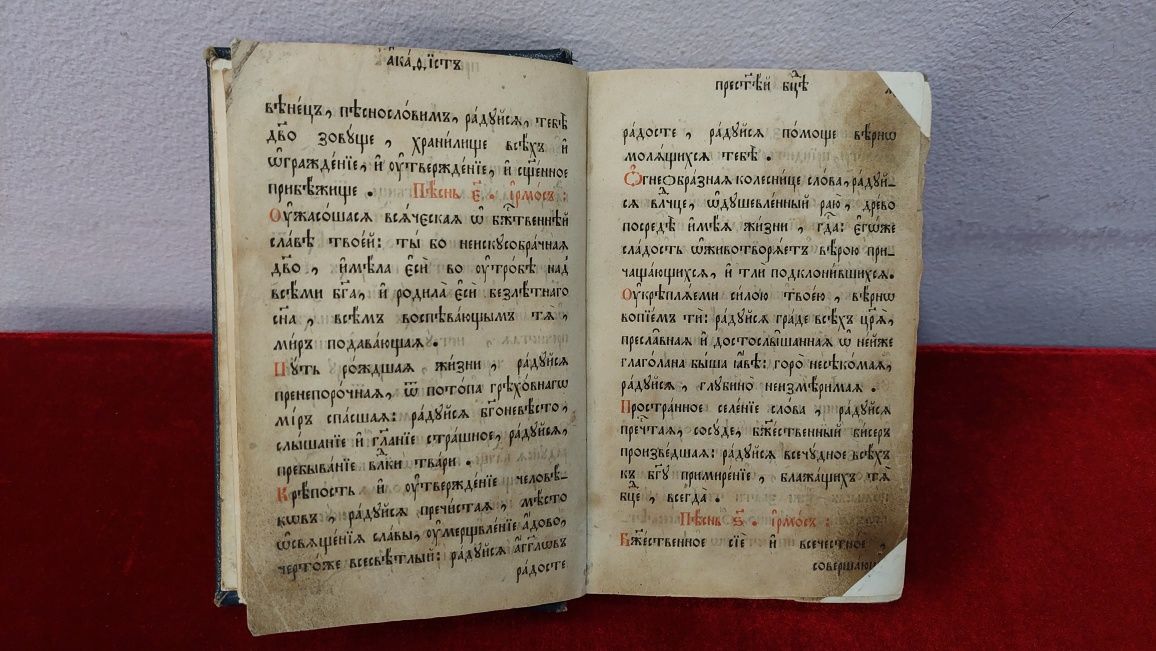 а҆ка́ѳїстъ
вѣне́цъ, пѣснословимъ, ра́дꙋйсѧ, тебѣ̀
дв҃о зовꙋще, храни́лище всѣ́хъ и҆
ѡ҆гражде́нїе, и҆ ᲂу҆твержде́нїе, и҆ сщ҃е́нное
прибѣ́жище. Пѣ́снь є҃. і҆рмо́съ:
Оу҆жасо́шасѧ всѧ́ческаѧ ѡ҆ бж҃е́ственнѣй
сла́вѣ твое́й: ты́ бо неискꙋсобра́чнаѧ
дв҃о, и҆мѣ́ла є҆сѝ во ᲂу҆тро́бѣ над
всѣ́ми бг҃а, и҆ роди́ла є҆сѝ безлѣ́тнаго
сн҃а, всѣ́мъ воспѣва́ющымъ тѧ̀,
ми́ръ подава́ющаѧ.
Пꙋть ро́ждшаѧ жи́зни, ра́дꙋйсѧ
пренепоро́чнаѧ, ѿ пото́па грѣхо́внагѡ
мі́ръ спа́сшаѧ: ра́дꙋйсѧ бг҃оневѣ́сто,
слы́шанїе и҆ гл҃а́нїе стра́шное, ра́дꙋйсѧ,
пребыва́нїе влⷣки тва́ри.
Крѣ́пость и҆ ᲂу҆твержде́нїе человѣ́-
кѡвъ, ра́дꙋйсѧ пречи́стаѧ, мѣ́сто
ѡ҆свѧще́нїѧ сла́вы, ᲂу҆мерщвле́нїе а҆́дово,
черто́же всесвѣ́тлый: ра́дꙋйсѧ а҆́гг҃лѡвъ
ра́досте
прест҃ѣ́й бцⷣѣ
ра́досте, ра́дꙋйсѧ по́моще вѣ́рнѡ
молѧ́щихсѧ тебѣ̀.
Ѻ҆гнеѻбра́знаѧ колесни́це сло́ва, ра́дꙋй-
сѧ влⷣчце, ѡ҆дꙋшевле́нный раю̀, древо
посредѣ̀ и҆мѣ́ѧ жи́зни, гдⷭ҇а: є҆гѡ́же
сла́дость ѡ҆животворѧ́етъ вѣ́рою при-
чаща́ющихсѧ, и҆ тлѝ подклони́вшихсѧ.
Оу҆крѣплѧ́еми си́лою твое́ю, вѣ́рнѡ
вопїе́мъ ти: ра́дꙋйсѧ гра́де всѣ́хъ цр҃ѧ̀,
пресла́внаѧ и҆ достослы́шаннаѧ ѡ҆ не́йже
глаго́лана бы́ша ꙗ҆́вѣ: горо̀ несѣко́маѧ,
ра́дꙋйсѧ, глꙋбино̀ неизмѣ́римаѧ.
Простра́нное селе́нїе сло́ва, ра́дꙋйсѧ
пречⷭ҇таѧ, сосꙋ́де, бж҃е́ственный би́серъ
произве́дшаѧ: ра́дꙋйсѧ всечꙋ́дное всѣ́хъ
къ бг҃ꙋ примире́нїе, блажа́щихъ тѧ̀
бцⷣе, всегда̀.
Пѣ́снь ѕ҃. і҆рмо́съ:
Бж҃е́ственное сїѐ и҆ всече́стное,
соверша́ю